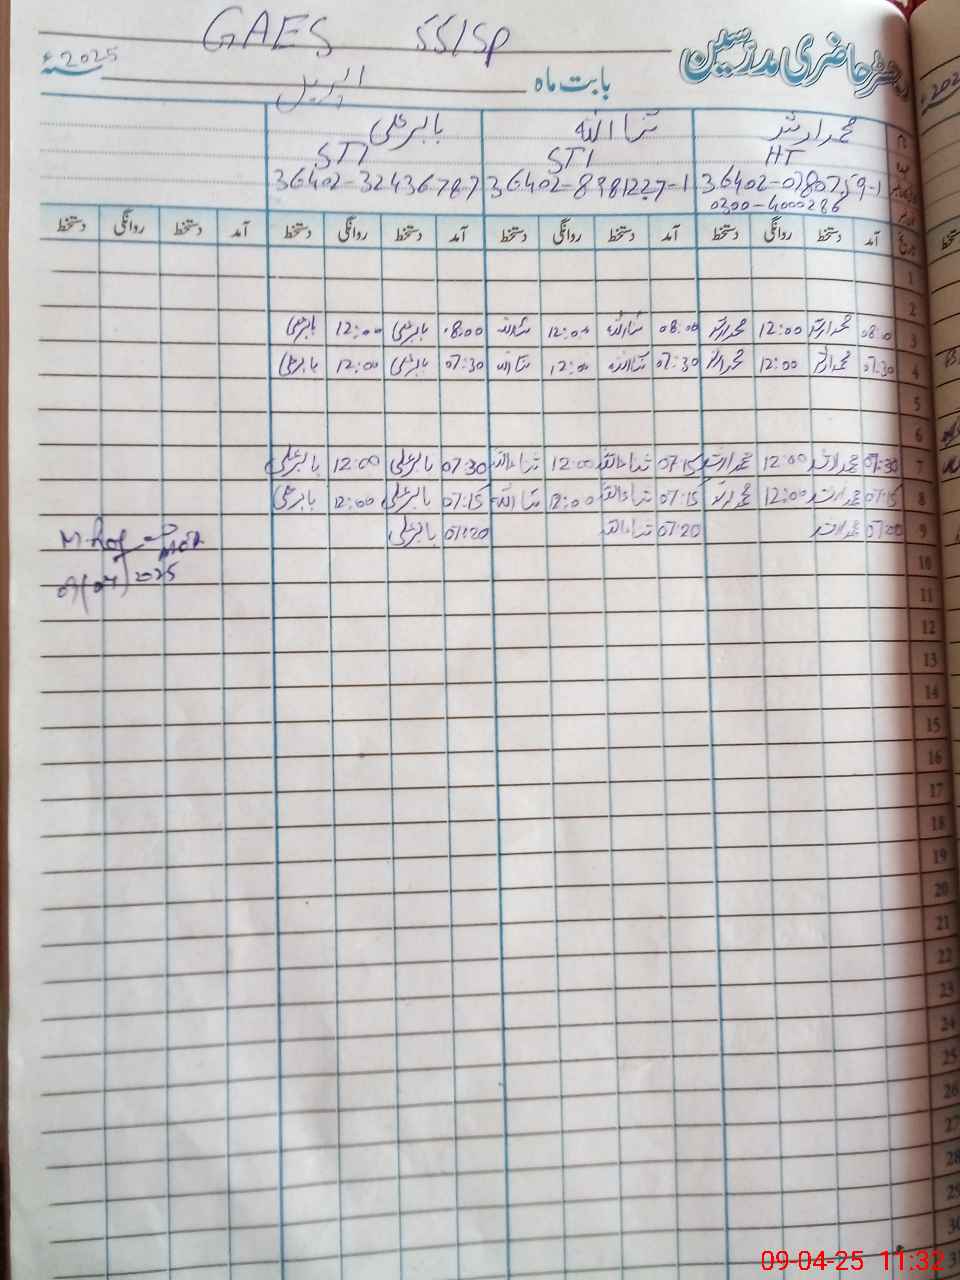 GAES 55/SP
رجسٹر حاضری مدرسین
2025ء
بابت ماہ اپریل
محمد ارشد ثناءاللہ بابر علی
HT STI STI
36402-0780759-1 36402-8981227-1 36402-32436787
0300-4000286
آمد دستخط روانگی دستخط آمد دستخط روانگی دستخط آمد دستخط روانگی دستخط آمد دستخط روانگی دستخط
1
2
3 08:00 محمد ارشد 12:00 محمد ارشد 08:00 ثناءاللہ 12:00 ثناءاللہ 08:00 بابر علی 12:00 بابر علی
4 07:30 محمد ارشد 12:00 محمد ارشد 07:30 ثناءاللہ 12:00 ثناءاللہ 07:30 بابر علی 12:00 بابر علی
5
6
7 07:30 محمد ارشد 12:00 محمد ارشد 07:15 ثناءاللہ 12:00 ثناءاللہ 07:30 بابر علی 12:00 بابر علی
8 07:15 محمد ارشد 12:00 محمد ارشد 07:15 ثناءاللہ 12:00 ثناءاللہ 07:15 بابر علی 12:00 بابر علی
9 07:00 محمد ارشد 07:20 ثناءاللہ 07:20 بابر علی
10
11
12
13
14
15
16
17
18
19
20
21
22
23
24
25
26
27
28
29
30
31
09-04-25 11:32